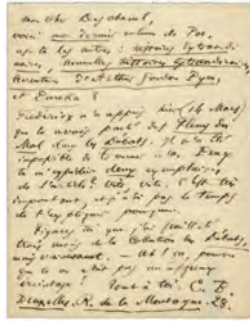 mon cher Deschanel,
voici mon dernier volume de Poe.
as-tu les autres : histoires extraordi
naires, nouvelles histoires extraordinaires,
aventures d'Arthur Gordon Pym,
et Eureka ?
m'a appris hier 14 Mars
que tu avais parlé des fleurs du
Mal dans les Débats. Je n'ai été
impossible de trouver cela. Peux-
tu m'expédier deux exemplaires
de l'article ? Vite, vite. C'est très
important, et je n'ai pas le temps
de t'expliquer pourquoi.
Figure toi que j'ai feuilleté
trois mois de la collection des Débats,
mais vainement. — Ah ! ça, pourvu
que tu ne
Tout à toi. C. B.
Bruxelles. R. de la Montagne. 28.